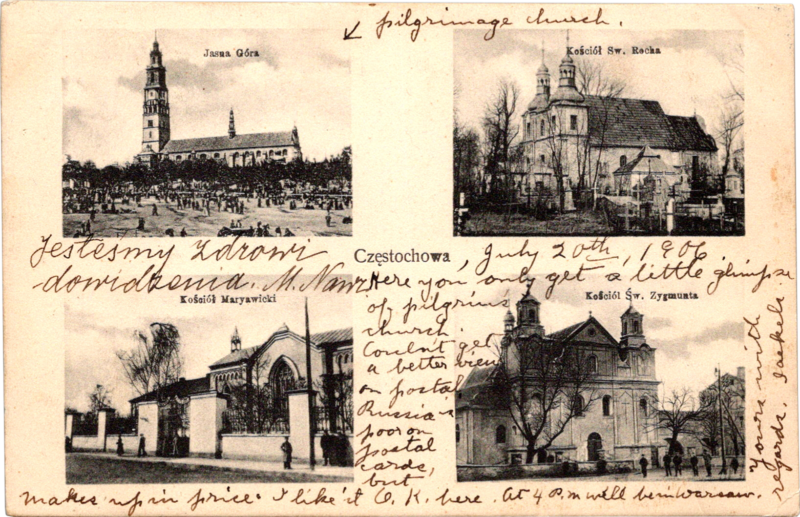 ↙ pilgrimage church.
Jasna Góra
Kościół Św. Rocha
Jesteśmy zdrowi
dowidzenia. M.
Częstochowa
, July 20th, 1906.
Kościół Maryawicki
Kościół Św. Zygmunta
Here you only get a little glimpse
of pilgrims
church.
Couldn't get
a better view
on postal
Russia
poor on
postal
cards,
but
makes up in price. I like it O.K. here. At 4 P.m will be in Warsaw.
Yours with
regards. Jaekels.